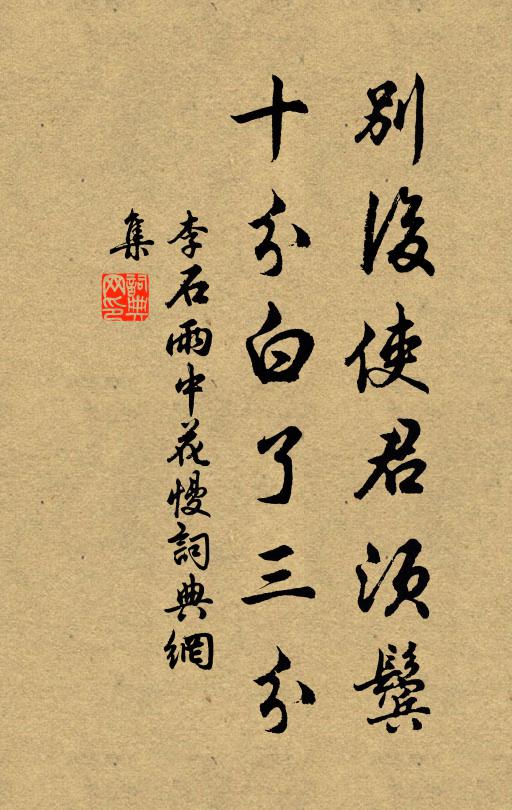 別後使君須鬓
十分白了三分
李石雨中花慢詞典網
集
詞典网印